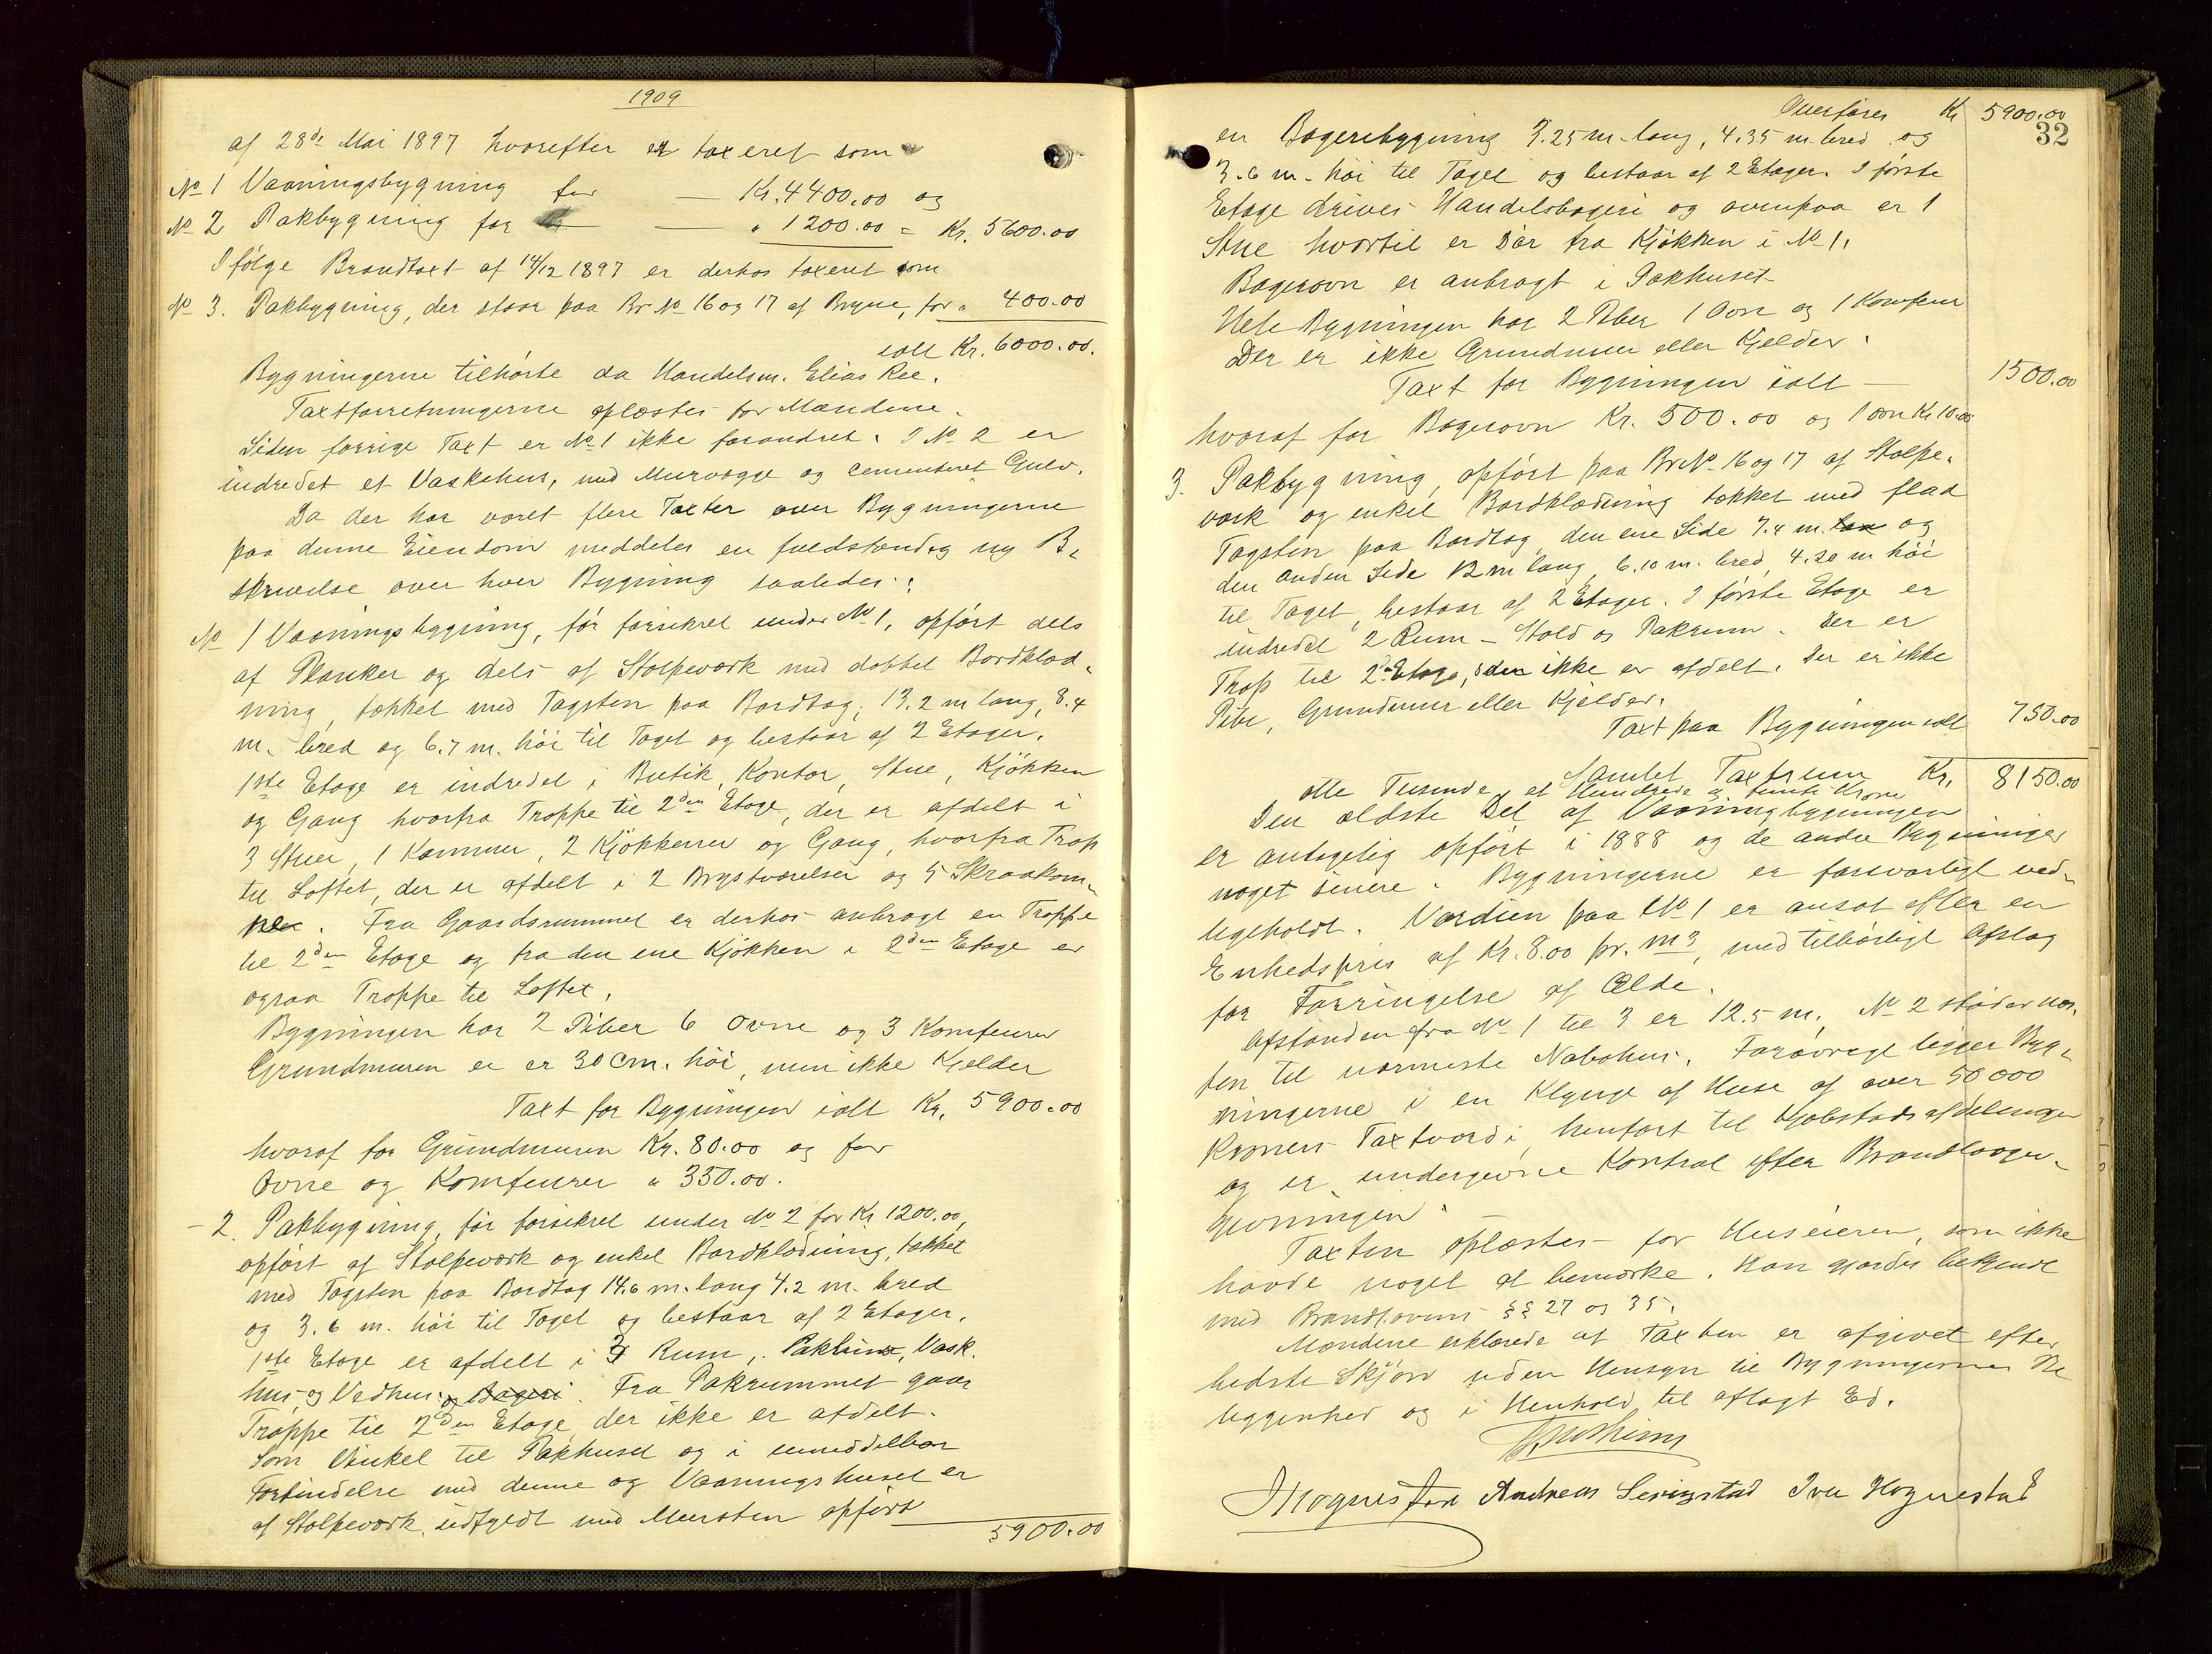 1909
af 28de Mai 1897 hvorefter er taxeret som
No 1 Vaaningsbygning for — Kr. 4400.00 og
No 2 Pakbygning for — " 1200.00 = Kr. 5600.00
Ifølge Brandtaxt af 14/12 1897 er derhos taxeret som
No 3. Pakbygning, der staar paa Br No 16 og 17 af Bryne, for " 400.00
ialt Kr. 6000.00.
Bygningerne tilhørte da Handelsm. Elias Ree.
Taxtforretningerne oplæstes for Mændene.
Siden forrige Taxt er No 1 ikke forandret. I No 2 er
indredet et Vaskehus, med Murvægge og cementeret Gulv.
Da der har været flere Taxter over Bygningerne
paa denne Eiendom meddeles en fuldstændig ny Be
skrivelse over hver Bygning saaledes:
No 1 Vaaningsbygning, før forsikret under No 1, opført dels
af Planker og dels af Stolpeværk med dobbel Bordklæd-
ning, tækket med Tagsten paa Bordtag, 13.2 m lang, 8.4
m. bred og 6.7 m. høi til Taget og bestaar af 2 Etager.
1ste Etage er indredet i Butik, Kontor, Stue, Kjøkken
og Gang hvorfra Trappe til 2den Etage, der er afdelt i
3 Stuer, 1 Kammer, 2 Kjøkkener og Gang, hvorfra Trap
til Loftet, der er afdelt i 2 Brystværelser og 5 Skraakam-
mer. Fra Gaardsrummet er derhos anbragt en Trappe
til 2den Etage og fra den ene Kjøkken i 2den Etage er
ogsaa Trappe til Loftet.
Bygningen har 2 Piber 6 Ovne og 3 Komfeurer
Grundmuren er er 30 cm. høi, men ikke Kjelder
Taxt for Bygningen ialt Kr. 5900.00
hvoraf for Grundmuren Kr. 80.00 og for
Ovne og Komfeurer " 350.00.
- 2. Pakbygning, før forsikret under No 2 for Kr 1200.00,
opført af Stolpeværk og enkel Bordklædning, tækket
med Tagsten paa Bordtag 14.6 m. lang 4.2 m. bred
og 3.6 m. høi til Taget og bestaar af 2 Etager.
1ste Etage er afdelt i 3 Rum, Pakrum, Vask.
hus, og Vedhus. og Bageri. Fra Pakrummet gaar
Trappe til 2den Etage, der ikke er afdelt.
Som Vinkel til Pakhuset og i umiddelbar
Forbindelse med denne og Vaaningshuset er
af Stolpeværk, udfyldt med Mursten opført
5900.00
Overføres Kr 5900.00
32
en Bageribygning 7.25 m. lang, 4.35 m. bred og
3.6 m. høi til Taget og bestaar af 2 Etager. I første
Etage drives Handelsbageri og ovenpaa er 1
Stue hvortil er Dør fra Kjøkken i No 1.
Bagerovn er anbragt i Pakhuset
Hele Bygningen har 2 Piber 1 Ovn og 1 Komfeur
Der er ikke Grundmur eller Kjelder.
Taxt for Bygningen ialt — 1500.00
hvoraf for Bagerovn Kr. 500.00 og 1 ovn Kr 10.00
3. Pakbygning, opført paa Br No 16 og 17 af Stolpe-
værk og enkel Bordklædning tækket med flad
Tagsten paa Bordtag, den ene Side 7.4 m. lan og
den anden Side 12 m lang, 6.10 m. bred, 4.20 m høi
til Taget, bestaar af 2 Etager. I første Etage er
indredet 2 Rum - Stald og Pakrum. Der er
Trap til 2den Etage, den ikke er afdelt. Der er ikke
Pibe, Grundmur eller Kjelder.
Taxt paa Bygningen ialt 750.00
Samlet Taxtsum Kr. 8150.00
otte Tusinde, et Hundrede og femti Kroner
Den ældste Del af Vaaningbygningen
er antagelig opført i 1888 og de andre Bygninger
noget senere. Bygningerne er forsvarligt ved-
ligeholdt. Værdien paa No 1 er ansat efter en
Enhedspris af Kr. 8.00 pr. m3, med tilbørligt Afslag
for Forringelse af Ælde.
Afstanden fra No 1 til 3 er 12.5 m. No 2 støder næs-
ten til nærmeste Nabohus. Forøvrigt ligger Byg-
ningerne i en Klynge af Huse af over 50000
Kroners Taxtværdi, henført til Kjøbstadsafdelingen
og er undergivne Kontrol efter Brandlovgiv-
givningen.
Taxten oplæstes for Huseieren, som ikke
havde noget at bemærke. Han gjordes bekjendt
med Brandlovens §§ 27 og 35.
Mændene erklærede at Taxten er afgivet efter
bedste Skjøn uden Hensyn til Bygningernes Be
liggenhed og i Henhold til aflagt Ed.
Andreas Serigstad Iver Hognestad